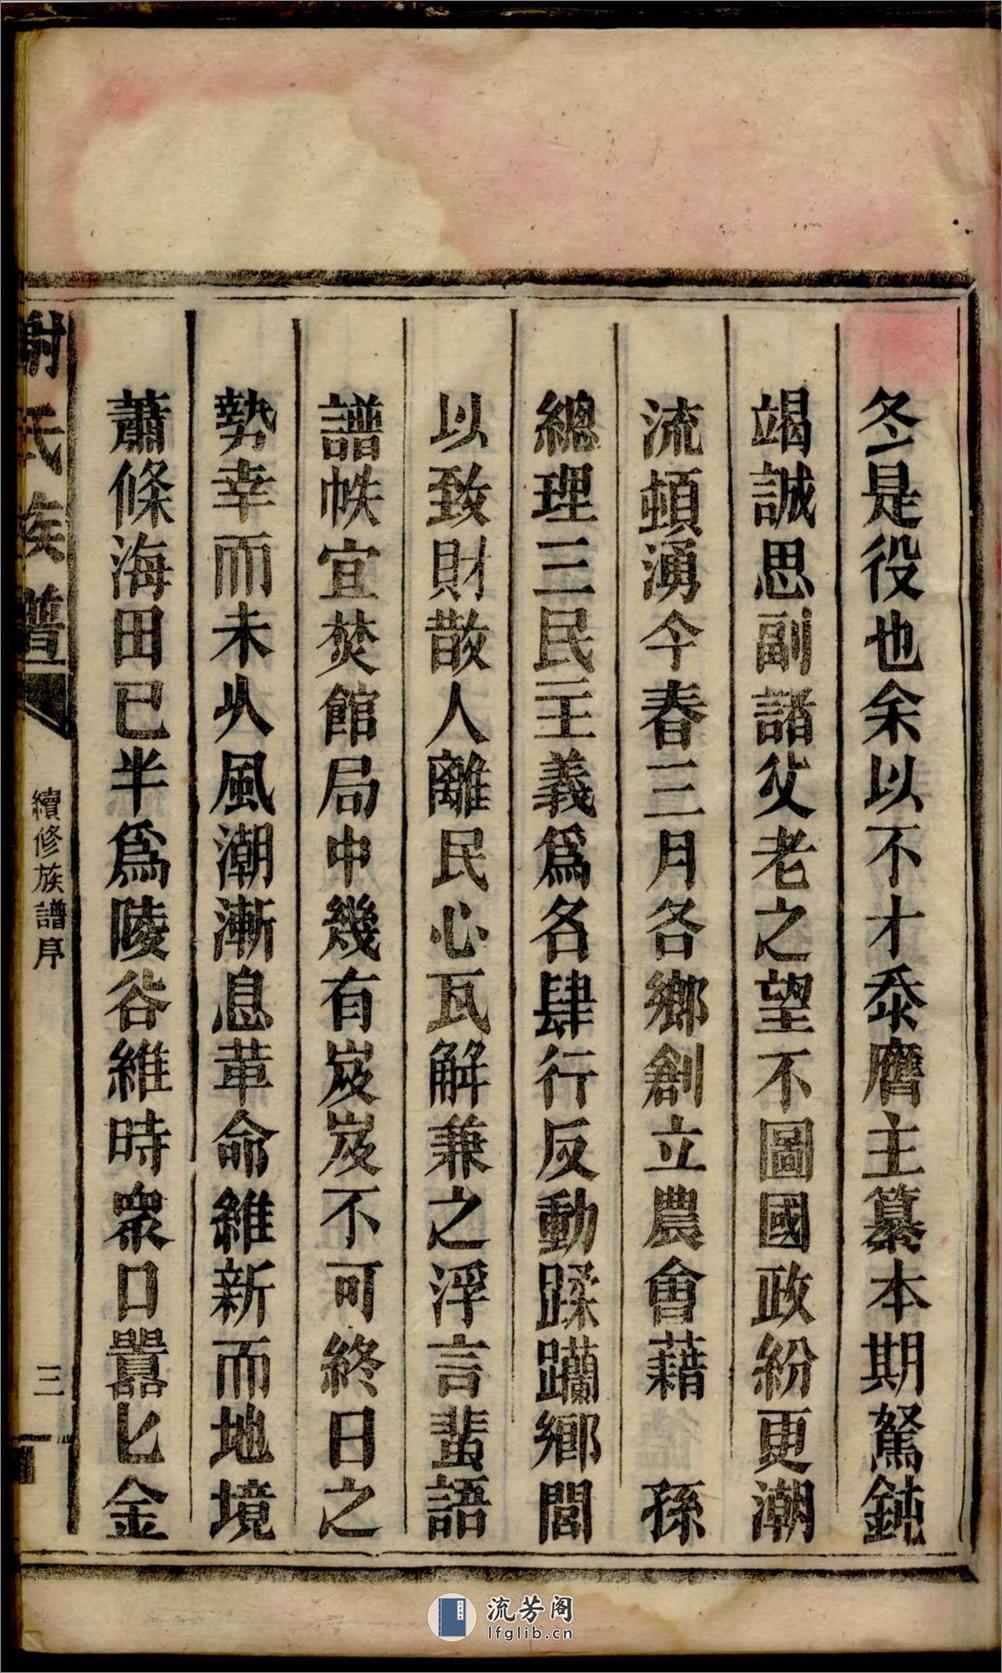 冬是役也余以不才忝膺主纂本期駑鈍
竭誠思副諸父老之望不圖國政紛更潮
流頓湧今春三月各鄉創立農會藉 孫
總理三民主義爲名肆行反動蹂躪鄉閭
以致財散人離民心瓦解兼之浮言蜚語
譜帙宜焚館局中幾有岌岌不可終日之
勢幸而未乆風潮漸息革命維新而地境
蕭條海田已半爲陵谷維時衆口囂匕金
謝氏族譜
續修族譜序
三
流芳阁
lfglib.cn